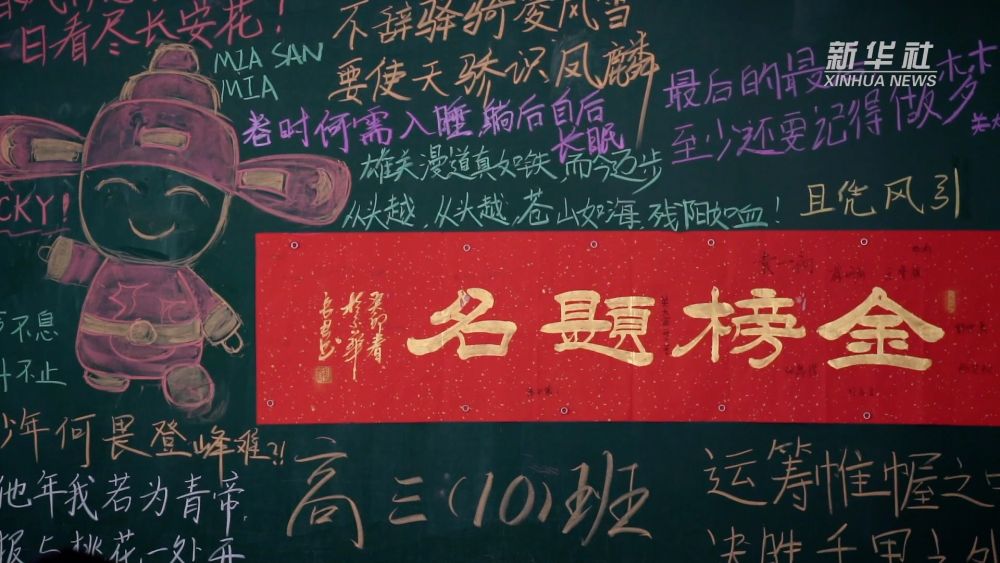 一日看尽长安花!
MIA SAN
MIA
不辞驿骑凌风雪
要使天骄识凤麟
卷时何需入睡 躺后自后
长眠
最后的最
至少还要记得做梦
新华社
XINHUA NEWS
雄关漫道真如铁,而今迈步
从头越,从头越,苍山如海,残阳如血!
且凭风引
CKY!
名题榜金
不息
不止
少年何畏登峰难?!
他年我若为青帝,
报与桃花一处开
高三(10)班
运筹帷幄之中
决胜千里之外